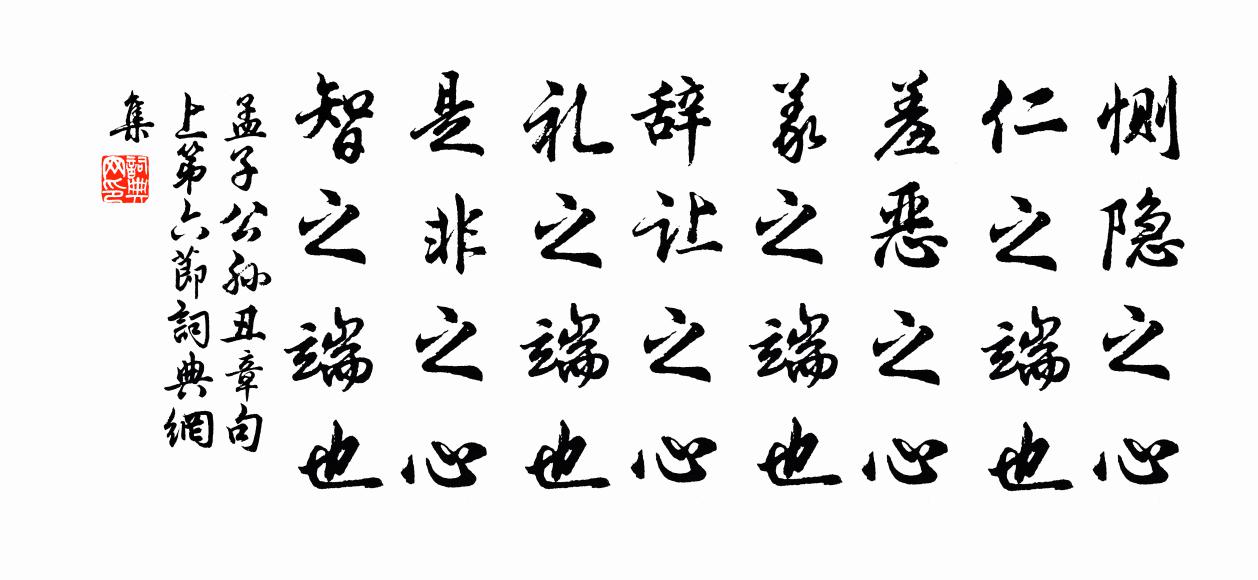 恻隐之心
仁之端也
羞恶之心
义之端也
辞让之心
礼之端也
是非之心
智之端也
孟子公孙丑章句
上第六節詞典網
集
詞典
网印